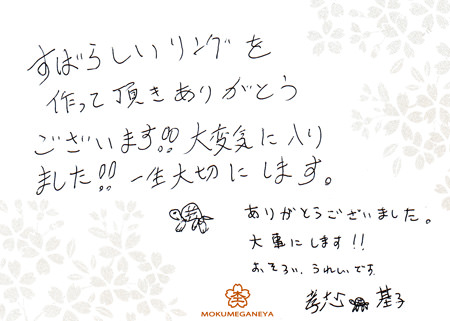 すばらしいリングを
作って頂きありがとう
ございます!! 大変気に入り
ました!! 一生大切にします。
ありがとうございました。
大事にします!!
おそろい、うれしいです
基子
MOKUMEGANEYA